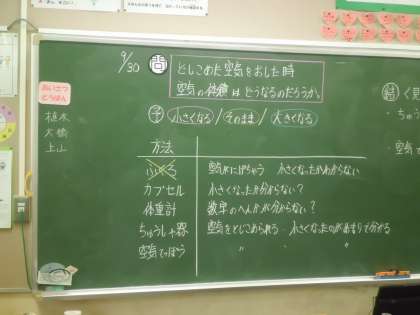 9/30
問 とじこめた空気をおした時
空気の体積はどうなるのだろうか。
予 小さくなる/そのまま/大きくなる
あいさつ
とうばん
植木
大橋
上山
方法
ふくろ 空気がにげちゃう 小さくなったかわからない
カプセル 小さくなったか分からない?
体重計 数字のへんかが分からない?
ちゅうしゃ器 空気をとじこめられる・小さくなったのが目もりで分かる
空気でっぽう 〃 〃
結 く
・ちゅう
・空気